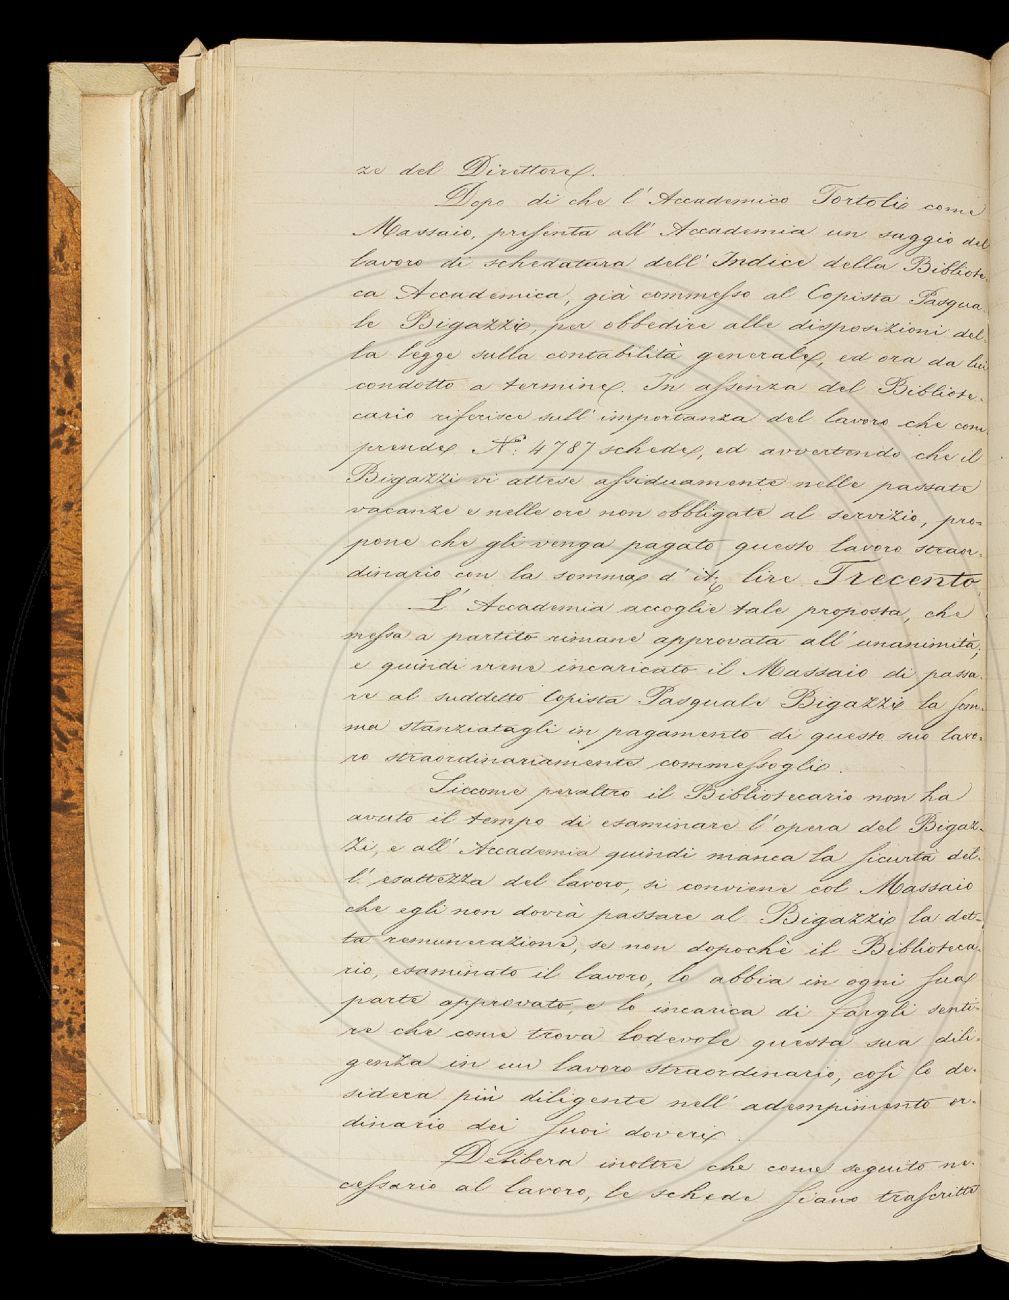 ze del Direttore.
Dopo di che l' Accademico Tortoli come
Massaio, presenta all' Accademia un saggio del
lavoro di schedatura dell' Indice della Bibliote-
ca Accademica, già commesso al Copista Pasqua-
le Bigazzi, per obbedire alle disposizioni del-
la legge sulla contabilità generale, ed ora da lui
condotto a termine. In assenza del Bibliote-
cario riferisce sull' importanza del lavoro che com-
prende N.º 4787 schede, ed avvertendo che il
Bigazzi vi attese assiduamente nelle passate
vacanze e nelle ore non obbligate al servizio, pro-
pone che gli venga pagato questo lavoro straor-
dinario con la somma d' it. lire Trecento.
L' Accademia accoglie tale proposta, che
messa a partito rimane approvata all' unanimità;
e quindi viene incaricato il Massaio di passa-
re al suddetto Copista Pasquale Bigazzi la som-
ma stanziatagli in pagamento di questo suo lavo-
ro straordinariamente commessogli.
Siccome peraltro il Bibliotecario non ha
avuto il tempo di esaminare l' opera del Bigaz-
zi, e all' Accademia quindi manca la sicurtà del-
l' esattezza del lavoro, si conviene col Massaio
che egli non dovrà passare al Bigazzi la det-
ta remunerazione, se non dopochè il Biblioteca-
rio, esaminato il lavoro, lo abbia in ogni sua
parte approvato, e lo incarica di fargli senti-
re che come trova lodevole questa sua dili-
genza in un lavoro straordinario, così lo de-
sidera più diligente nell' adempimento or-
dinario dei suoi doveri.
Delibera inoltre che come seguito ne-
cessario al lavoro, le schede siano trascritte